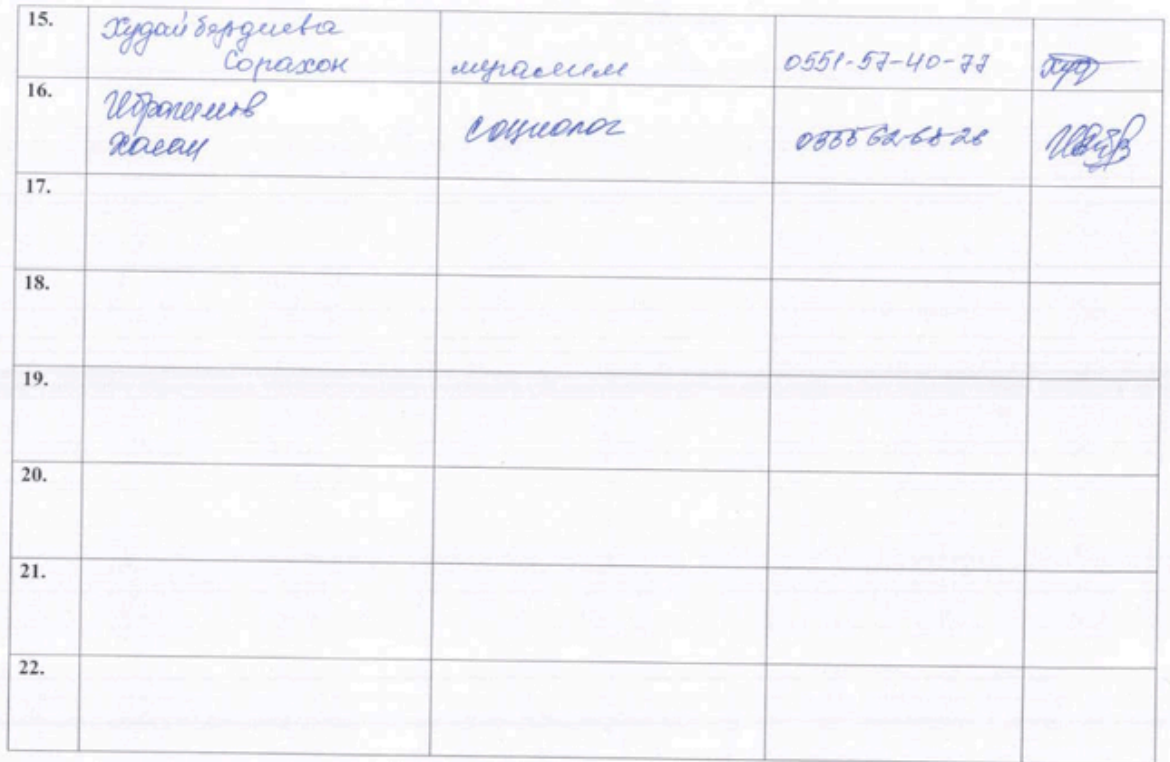 15.
Худайбердиева
Сорахон
мугалим
0551-57-40-77
16.
Ибрагимов
Хасан
социолог
17.
18.
19.
20.
21.
22.